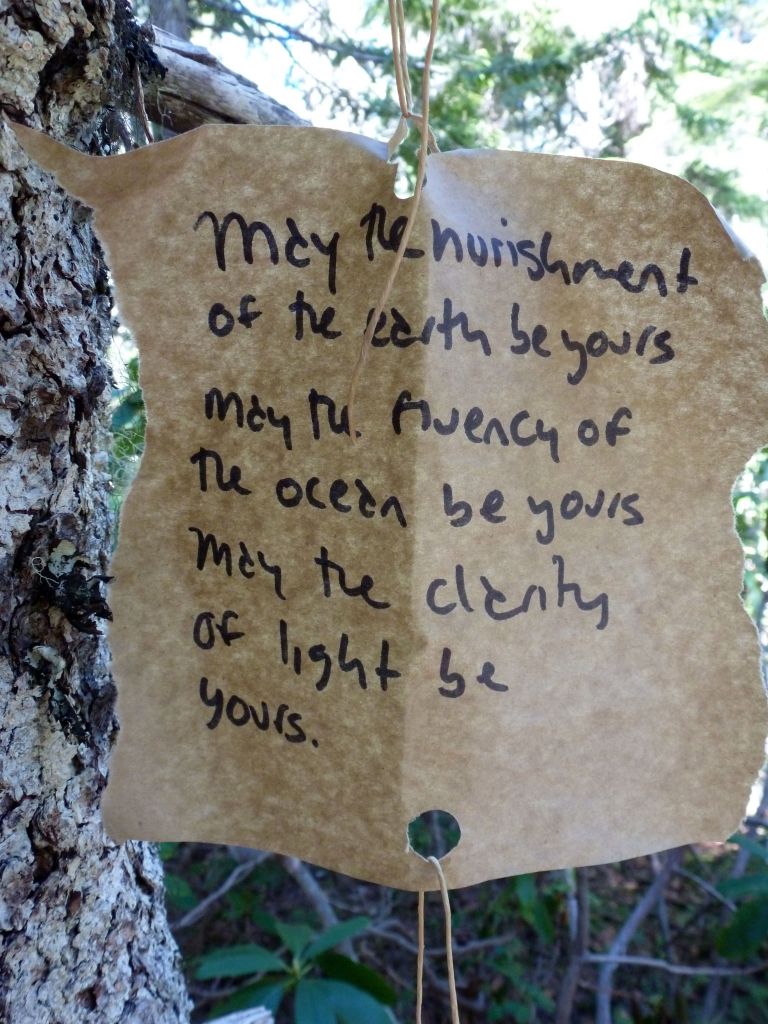 May the nurishment
of the earth be yours
May the fluency of
the ocean be yours
May the clarity
of light be
yours.